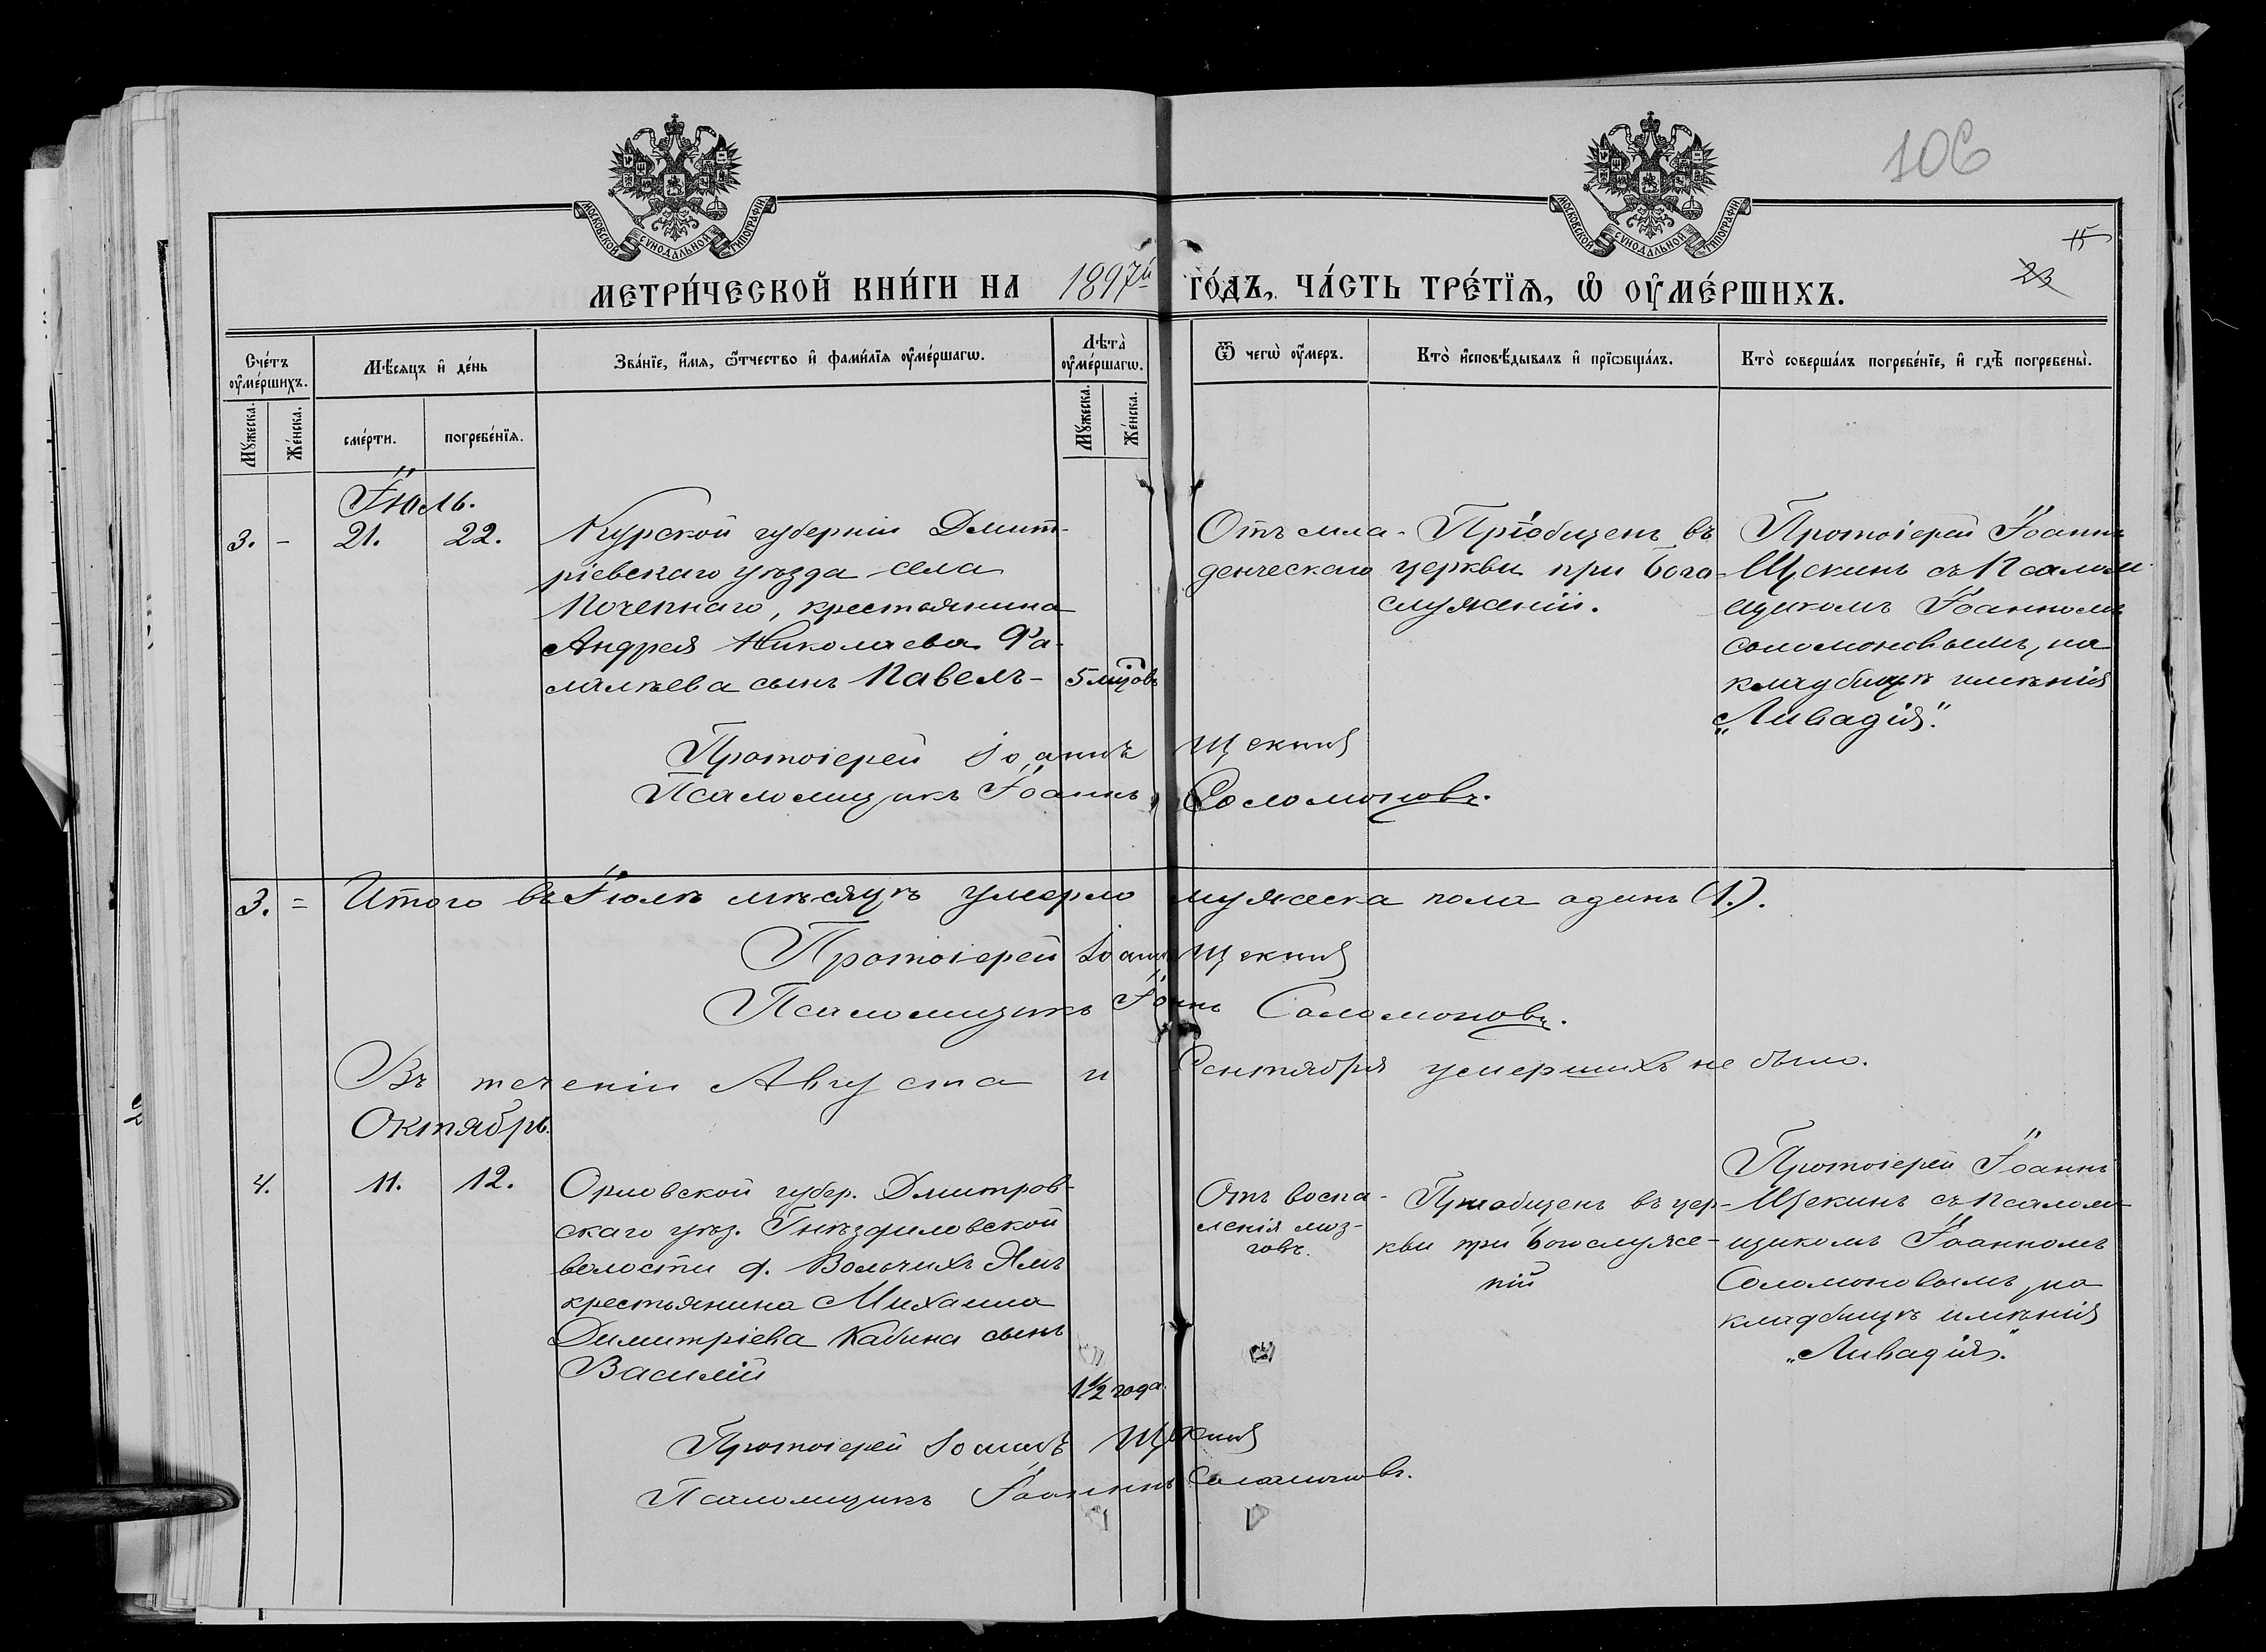 106
15
23
МОСКОВСКОЙ СѴНОДАЛЬНОЙ ТИПОГРАФІИ
МОСКОВСКОЙ СѴНОДАЛЬНОЙ ТИПОГРАФІИ
МЕТРИ́ЧЕСКОЙ КНИ́ГИ НА 1897й ГО́ДЪ, ЧА́СТЬ ТРЕ́ТЇѦ, Ѡ ОУ҆МЕ́РШИХЪ.
Сче́тъ оу҆ме́ршихъ.
Мѣ́сяцъ и҆ де́нь
Зва́нїе, и҆́мя, ѻ҆́тчество и҆ фами́лїя оу҆ме́ршагѡ.
Лѣта̀ оу҆ме́ршагѡ.
Ѿ чегѡ̀ оу҆́меръ.
Кто̀ и҆сповѣ́дывалъ и҆ прїѡбща́лъ.
Кто̀ соверша́лъ погребе́нїе, и҆ гдѣ̀ погребены̀.
Мꙋ́жеска.
Же́нска.
сме́рти.
погребе́нїя.
Мꙋ́жеска.
Же́нска.
Іюль.
3. - 21. 22.
Курской губерніи Дмит-
ріевскаго уѣзда села
Почепнаго, крестьянина
Андрея Николаева Фа-
малѣева сынъ Павелъ -
5 мцовъ
Отъ мла-
денческаго
Пріобщенъ въ
церкви при Бого-
служеніи.
Протоіерей Іоаннъ
Щекинъ съ Псалом-
щикомъ Іоанномъ
Соломоновымъ, на
кладбищѣ имѣнія
„Ливадія".
Протоіерей Іоаннъ Щекинъ
Псаломщикъ Іоаннъ Соломоновъ.
3. = Итого въ Іюлѣ мѣсяцѣ умерло мужеска пола одинъ (1.).
Протоіерей Іоаннъ Щекинъ
Псаломщикъ Іоннъ Соломоновъ.
Въ теченіи Августа и Сентября умершихъ не было.
Октябрь.
4. 11. 12.
Орловской губер. Дмитров-
скаго уѣз. Гнѣздиловской
волости д. Вольчихъ Ямъ
крестьянина Михаила
Димитріева Кабина сынъ
Василій
1½ года.
Отъ воспа-
ленія моз-
говъ.
Пріобщенъ въ цер-
кви при богослуже-
ніи
Протоіерей Іоаннъ
Щекинъ съ псалом-
щикомъ Іоанномъ
Соломоновымъ, на
кладбищѣ имѣнія
„Ливадія".
Протоіерей Іоаннъ Щекинъ
Псаломщикъ Іоаннъ Соломоновъ.